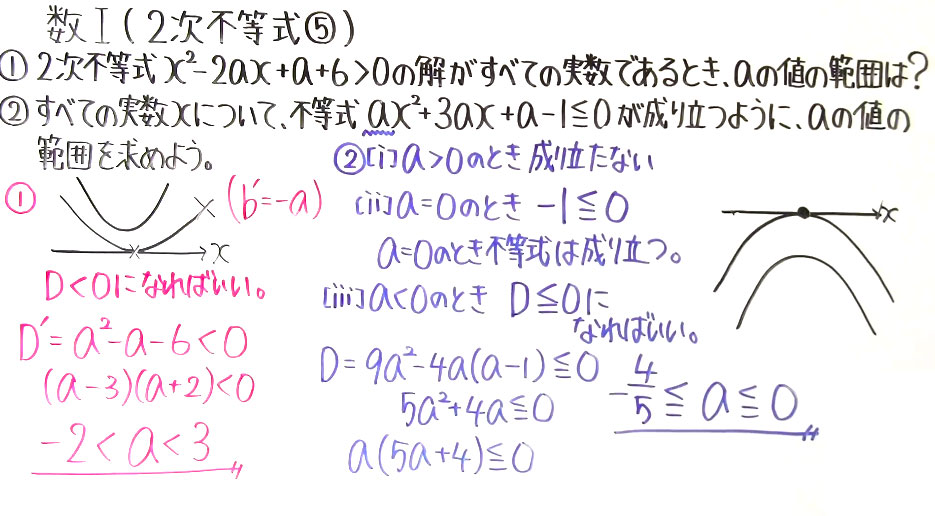 数Ⅰ(2次不等式⑤)
① 2次不等式 x²-2ax+a+6>0の解がすべての実数であるとき、aの値の範囲は?
② すべての実数xについて、不等式 ax²+3ax+a-1≦0 が成り立つように、aの値の
範囲を求めよう。
①
(b'=-a)
x
D<0になればいい。
D'=a²-a-6<0
(a-3)(a+2)<0
-2<a<3
②[i]a>0のとき 成り立たない
[ii]a=0のとき -1≦0
a=0のとき不等式は成り立つ。
[iii]a<0のとき D≦0に
なればいい。
D=9a²-4a(a-1)≦0
5a²+4a≦0
a(5a+4)≦0
x
-4/5≦a≦0